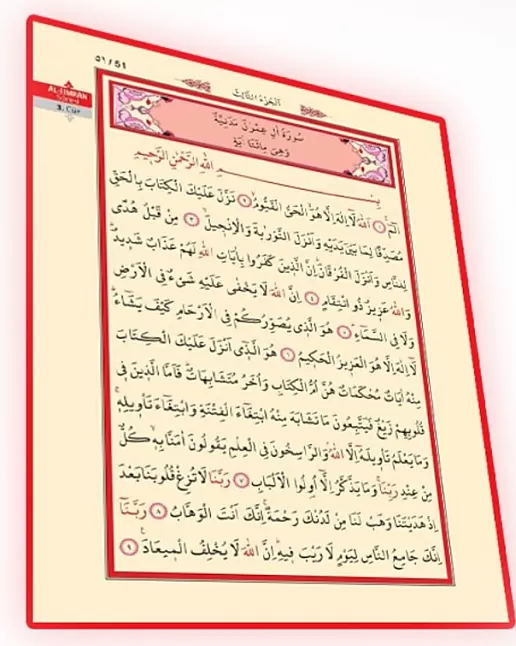 ٥١ / 51
اَلْجُزْءُ الثَّالِثُ
AL-İ İMRAN
Sûresi
3. Cüz
سُورَةُ اٰلِ عِمْرٰنَ مَدَنِيَّةٌ
وَهِىَ مِائَتَا اٰيَةٍ
بِسْمِ اللّٰهِ الرَّحْمٰنِ الرَّحِيمِ
الٓمٓ ﴿١﴾ اَللّٰهُ لَٓا اِلٰهَ اِلَّا هُوَ الْحَىُّ الْقَيُّومُ ﴿٢﴾ نَزَّلَ عَلَيْكَ الْكِتَابَ بِالْحَقِّ
مُصَدِّقًا لِمَا بَيْنَ يَدَيْهِ وَاَنْزَلَ التَّوْرٰيةَ وَالْاِنْجِيلَ ﴿٣﴾ مِنْ قَبْلُ هُدًى
لِلنَّاسِ وَاَنْزَلَ الْفُرْقَانَ اِنَّ الَّذِينَ كَفَرُوا بِاٰيَاتِ اللّٰهِ لَهُمْ عَذَابٌ شَدِيدٌ
وَاللّٰهُ عَزِيزٌ ذُو انْتِقَامٍ ﴿٤﴾ اِنَّ اللّٰهَ لَا يَخْفٰى عَلَيْهِ شَىْءٌ فِى الْاَرْضِ
وَلَا فِى السَّمَٓاءِ ﴿٥﴾ هُوَ الَّذِى يُصَوِّرُكُمْ فِى الْاَرْحَامِ كَيْفَ يَشَٓاءُ
لَٓا اِلٰهَ اِلَّا هُوَ الْعَزِيزُ الْحَكِيمُ ﴿٦﴾ هُوَ الَّذِٓى اَنْزَلَ عَلَيْكَ الْكِتَابَ
مِنْهُ اٰيَاتٌ مُحْكَمَاتٌ هُنَّ اُمُّ الْكِتَابِ وَاُخَرُ مُتَشَابِهَاتٌ فَاَمَّا الَّذِينَ فِى
قُلُوبِهِمْ زَيْغٌ فَيَتَّبِعُونَ مَا تَشَابَهَ مِنْهُ ابْتِغَٓاءَ الْفِتْنَةِ وَابْتِغَٓاءَ تَاْوِيلِهِ
وَمَا يَعْلَمُ تَاْوِيلَهُٓ اِلَّا اللّٰهُ وَالرَّاسِخُونَ فِى الْعِلْمِ يَقُولُونَ اٰمَنَّا بِهِ كُلٌّ
مِنْ عِنْدِ رَبِّنَا وَمَا يَذَّكَّرُ اِلَّٓا اُولُوا الْاَلْبَابِ ﴿٧﴾ رَبَّنَا لَا تُزِغْ قُلُوبَنَا بَعْدَ
اِذْ هَدَيْتَنَا وَهَبْ لَنَا مِنْ لَدُنْكَ رَحْمَةً اِنَّكَ اَنْتَ الْوَهَّابُ ﴿٨﴾ رَبَّنَٓا
اِنَّكَ جَامِعُ النَّاسِ لِيَوْمٍ لَا رَيْبَ فِيهِ اِنَّ اللّٰهَ لَا يُخْلِفُ الْمِيعَادَ ﴿٩﴾